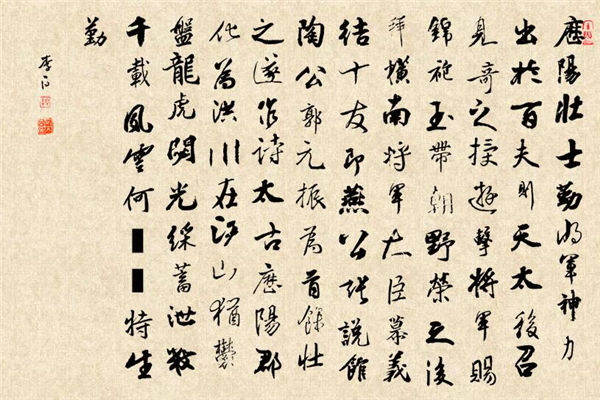 歷陽壯士勤將軍神力
出於百夫則天太後召
見奇之授遊擊將軍賜
錦袍玉帶朝野榮之後
拜橫南將軍大臣慕義
結十友即燕公張說館
陶公郭元振為首餘壯
之遂作詩太古歷陽郡
化為洪川在江山猶鬱
盤龍虎閟光綵蓄泄數
千載風雲何▮▮特生
勤
李白